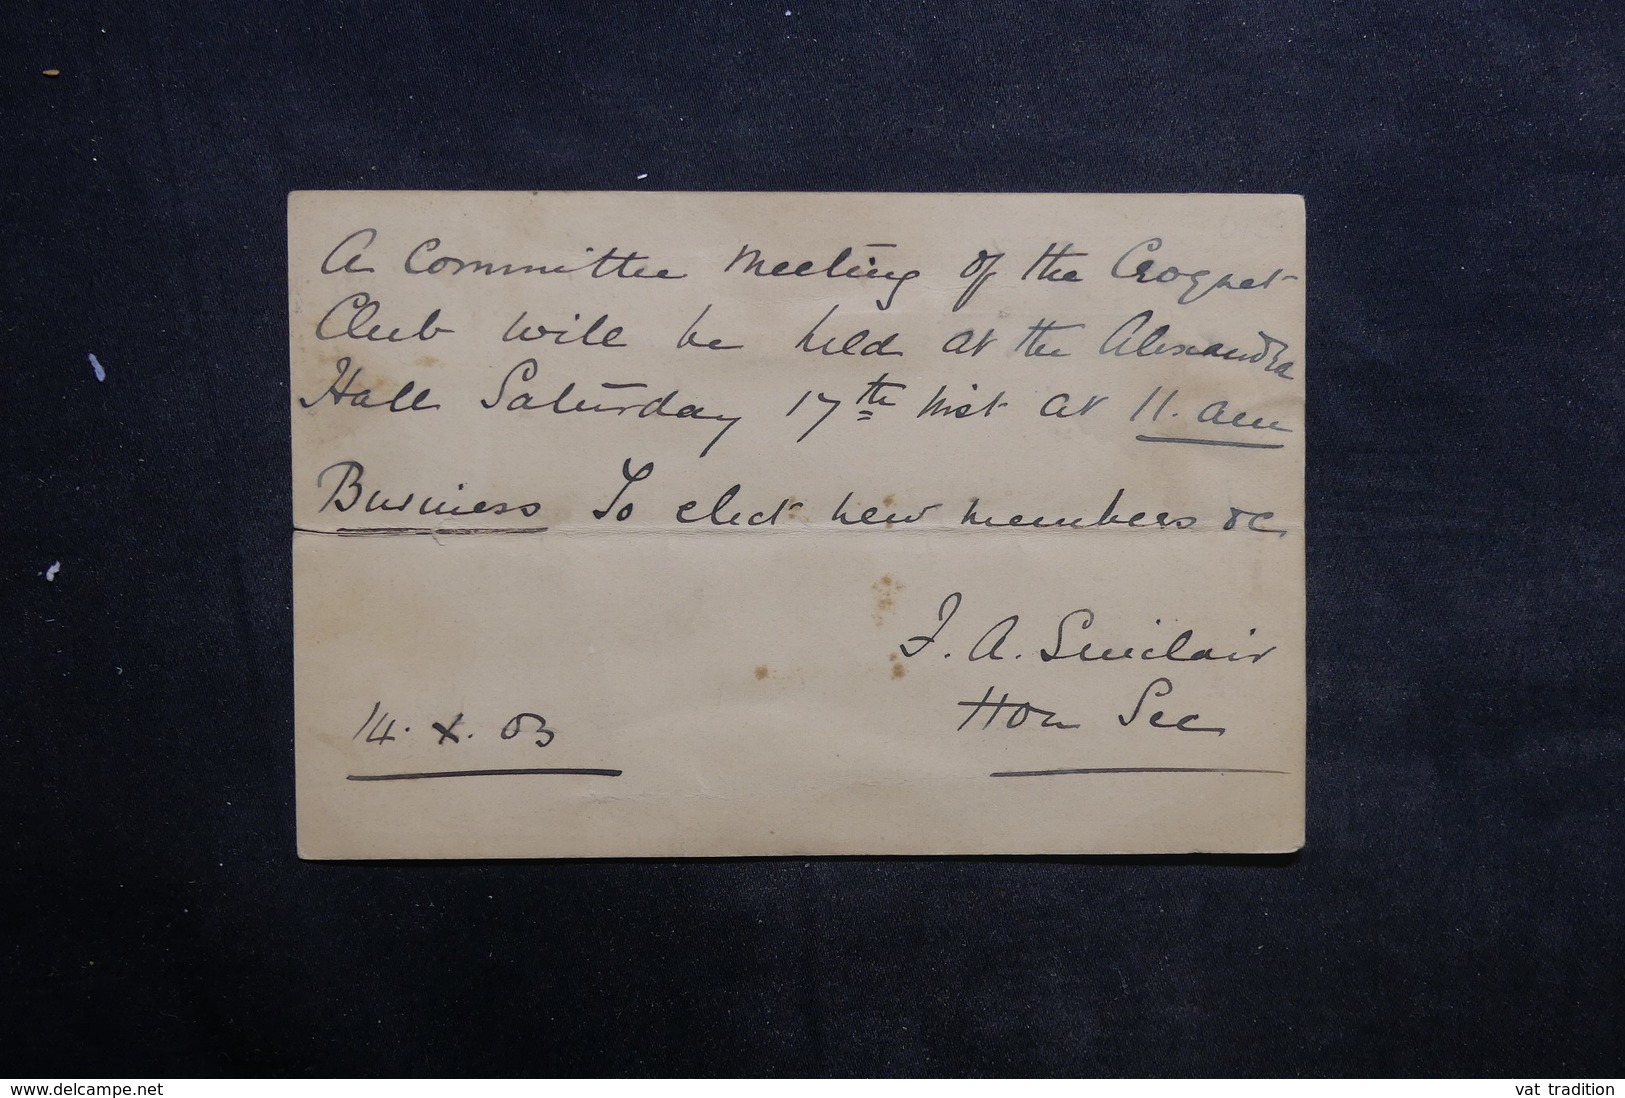 A Committee Meeting of the Croquet
Club will be held at the Alexandra
Hall Saturday 17th inst at 11. am
Business To elect new members &c
F. A. Sinclair
Hon Sec
14. X. 03
www.delcampe.net
vat tradition